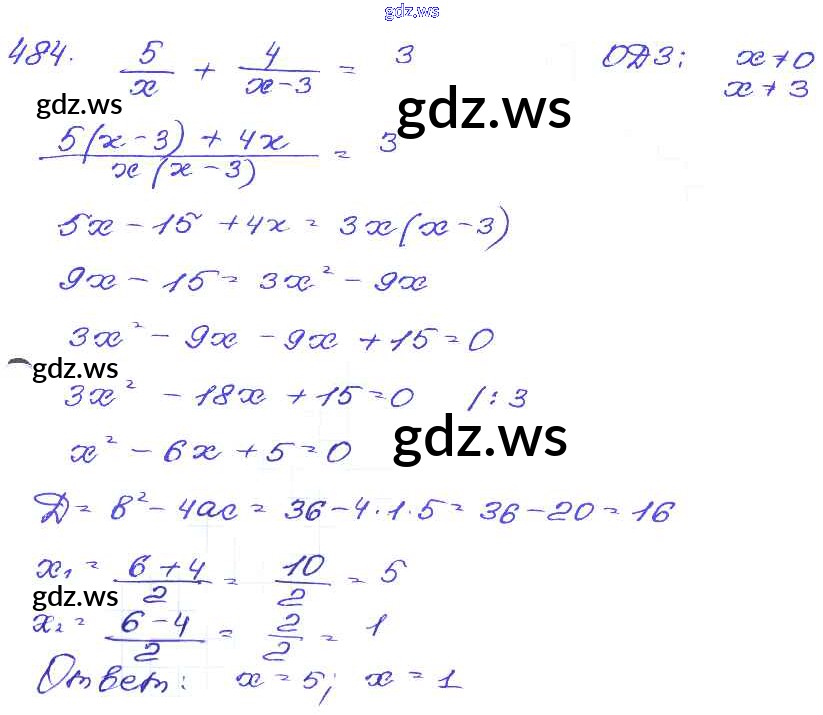 gdz.ws
484. 5/x + 4/(x-3) = 3 ОДЗ; x≠0
x≠3
gdz.ws gdz.ws
(5(x-3) + 4x)/(x(x-3)) = 3
5x - 15 + 4x = 3x(x-3)
9x - 15 = 3x² - 9x
3x² - 9x - 9x + 15 = 0
gdz.ws
3x² - 18x + 15 = 0 /:3
gdz.ws
x² - 6x + 5 = 0
Д = в² - 4ac = 36 - 4·1·5 = 36 - 20 = 16
x₁ = (6+4)/2 = 10/2 = 5
gdz.ws
x₂ = (6-4)/2 = 2/2 = 1
Ответ: x = 5; x = 1